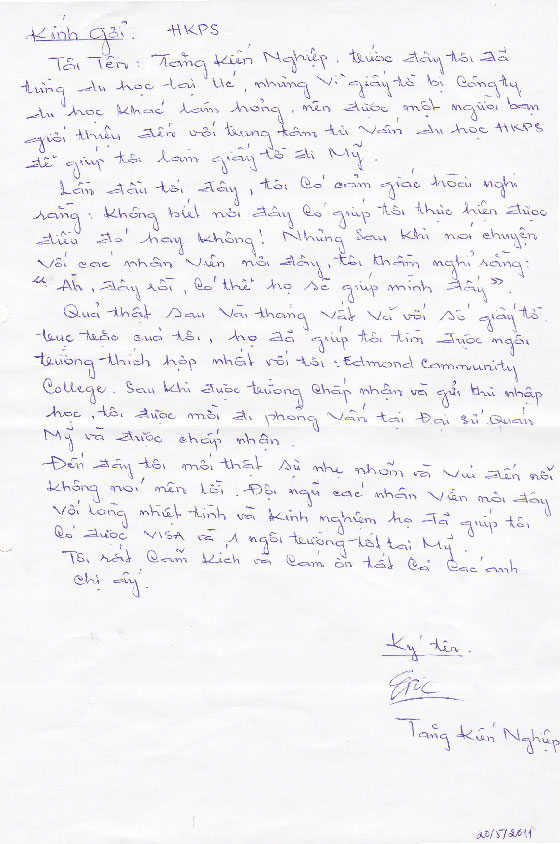 Kính gởi: HKPS
Tôi Tên: Tăng Kiến Nghiệp, trước đây tôi đã
từng du học tại Úc, nhưng vì giấy tờ bị Công ty
du học khác làm hỏng, nên được một người bạn
giới thiệu đến với trung tâm tư vấn du học HKPS
để giúp tôi làm giấy tờ đi Mỹ.
Lần đầu tới đây, tôi có cảm giác hoài nghi
rằng: không biết nơi đây có giúp tôi thực hiện được
điều đó hay không! Nhưng sau khi nói chuyện
với các nhân viên nơi đây, tôi thầm nghĩ rằng:
“Ah, đây rồi, có thể họ sẽ giúp mình đấy”.
Quả thật sau vài tháng vất vả với số giấy tờ
trục trặc của tôi, họ đã giúp tôi tìm được ngôi
trường thích hợp nhất với tôi: Edmond Community
College. Sau khi được trường chấp nhận và gửi thư nhập
học, tôi được mời đi phỏng vấn tại Đại Sứ Quán
Mỹ và được chấp nhận.
Đến đây tôi mới thật sự nhẹ nhõm và vui đến nỗi
không nói nên lời. Đội ngũ các nhân viên nơi đây
với lòng nhiệt tình và kinh nghiệm họ đã giúp tôi
có được VISA và 1 ngôi trường tốt tại Mỹ.
Tôi rất cảm kích và cám ơn tất cả các anh
chị ấy.
Ký tên.
Eric
Tăng Kiến Nghiệp
20/5/2011